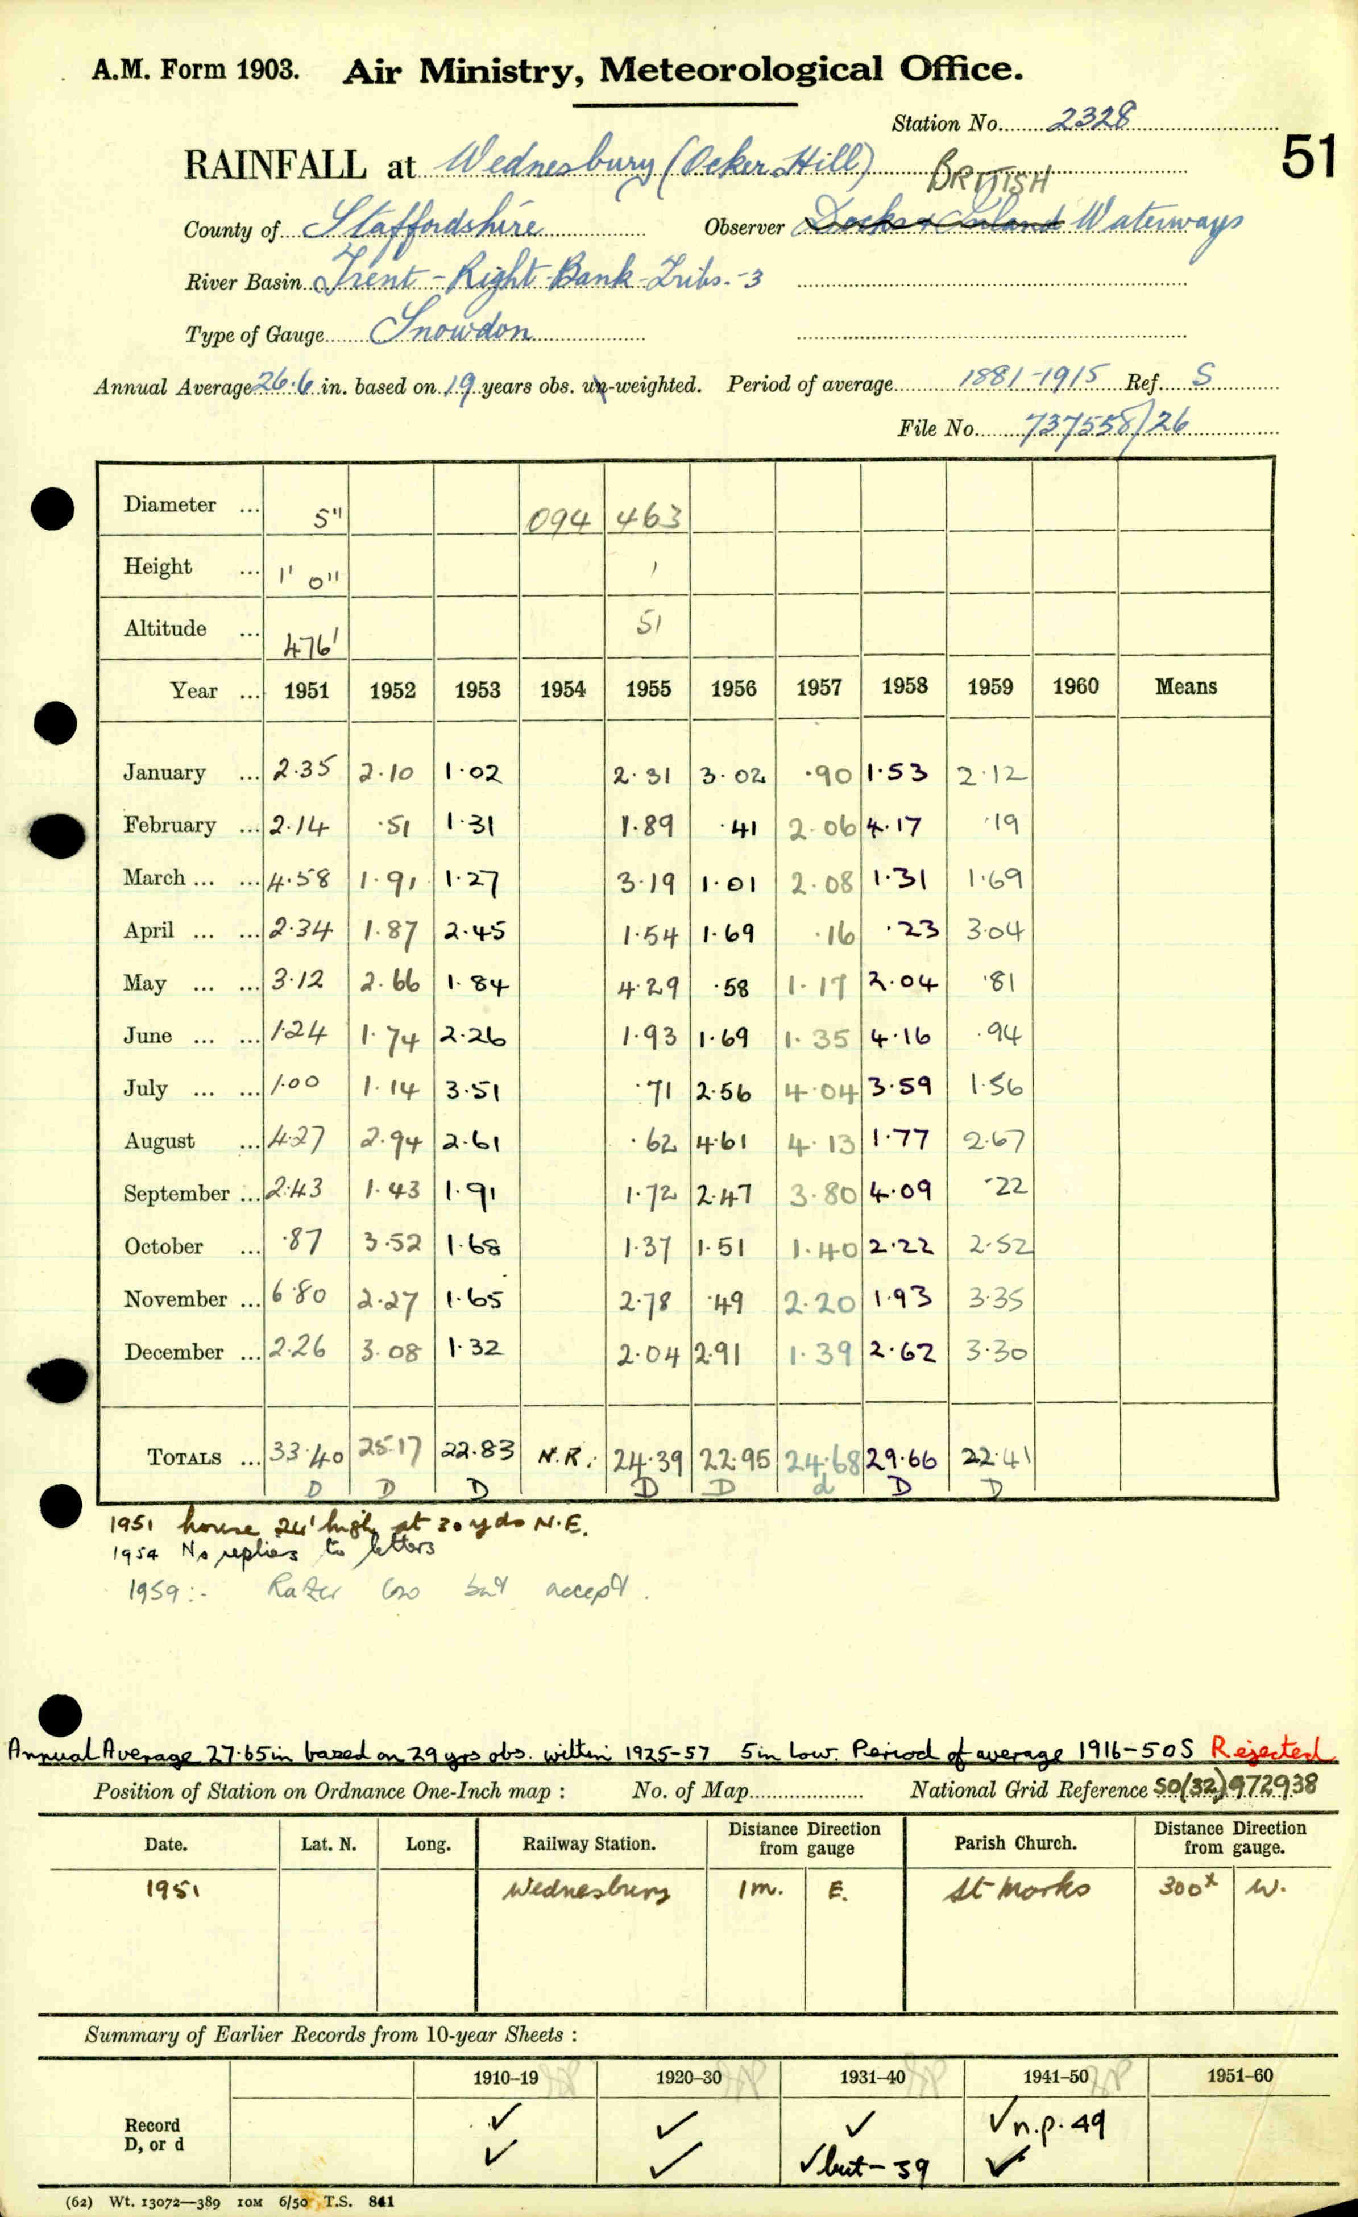 A.M. Form 1903. Air Ministry, Meteorological Office.
Station No. 2328
51
RAINFALL at Wednesbury (Ocker Hill)
BRITISH
County of Staffordshire Observer Docks & Inland Waterways
River Basin Trent - Right Bank Tribs. - 3
Type of Gauge Snowdon
Annual Average 26.6 in. based on 19 years obs. un-weighted. Period of average 1881-1915 Ref. S
File No. 737558/26
Diameter ... 5" 094 463
Height ... 1' 0" 1
Altitude ... 476' 51
Year ... 1951 1952 1953 1954 1955 1956 1957 1958 1959 1960 Means
January ... 2.35 2.10 1.02 2.31 3.02 .90 1.53 2.12
February ... 2.14 .51 1.31 1.89 .41 2.06 4.17 .19
March ... ... 4.58 1.91 1.27 3.19 1.01 2.08 1.31 1.69
April ... ... 2.34 1.87 2.45 1.54 1.69 .16 .23 3.04
May ... ... 3.12 2.66 1.84 4.29 .58 1.17 2.04 .81
June ... ... 1.24 1.74 2.26 1.93 1.69 1.35 4.16 .94
July ... ... 1.00 1.14 3.51 .71 2.56 4.04 3.59 1.56
August ... 4.27 2.94 2.61 .62 4.61 4.13 1.77 2.67
September ... 2.43 1.43 1.91 1.72 2.47 3.80 4.09 .22
October ... .87 3.52 1.68 1.37 1.51 1.40 2.22 2.52
November ... 6.80 2.27 1.65 2.78 .49 2.20 1.93 3.35
December ... 2.26 3.08 1.32 2.04 2.91 1.39 2.62 3.30
TOTALS ... 33.40 25.17 22.83 N.R. 24.39 22.95 24.68 29.66 22.41
D D D D D d D D
1951 house 24' high at 30 yds N.E.
1954 No replies to letters
1959:- Rather low but accept.
Annual Average 27.65in based on 29 yrs obs. within 1925-57 5in low. Period of average 1916-50 S Rejected
Position of Station on Ordnance One-Inch map : No. of Map National Grid Reference SO(32)972938
Date. Lat. N. Long. Railway Station. Distance from Direction gauge Parish Church. Distance from Direction gauge.
1951 Wednesbury 1m. E. St Marks 300x W.
Summary of Earlier Records from 10-year Sheets :
1910–19 1920–30 1931–40 1941–50 1951–60
Record ✓ ✓ ✓ ✓ n.p. 49
D, or d ✓ ✓ ✓ but - 39 ✓
(62) Wt. 13072—389 10M 6/50 T.S. 841